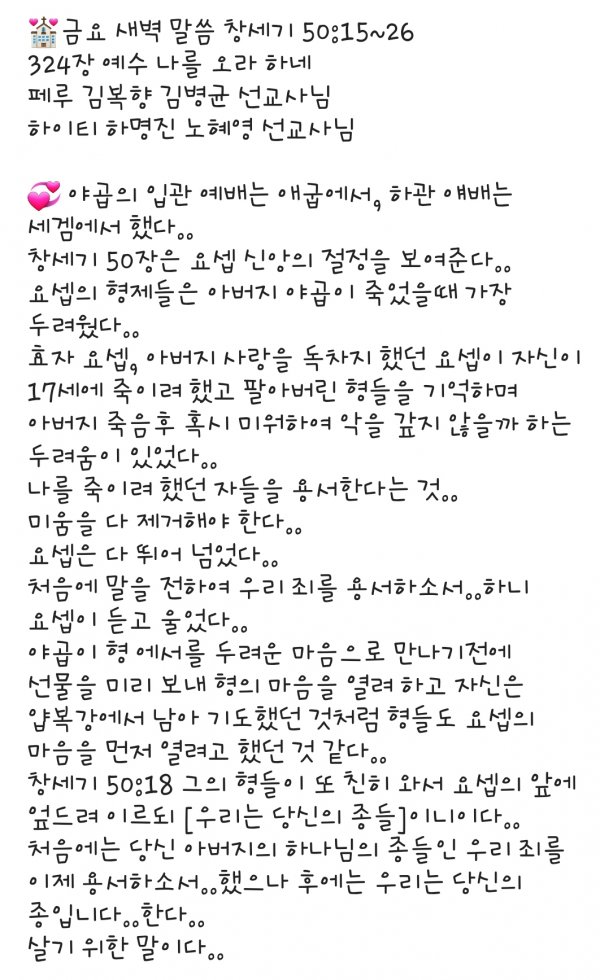 💒금요 새벽 말씀 창세기 50:15~26
324장 예수 나를 오라 하네
페루 김복향 김병균 선교사님
하이티 하명진 노혜영 선교사님
💞 야곱의 입관 예배는 애굽에서, 하관 얘배는
세겜에서 했다..
창세기 50장은 요셉 신앙의 절정을 보여준다..
요셉의 형제들은 아버지 야곱이 죽었을때 가장
두려웠다..
효자 요셉, 아버지 사랑을 독차지 했던 요셉이 자신이
17세에 죽이려 했고 팔아버린 형들을 기억하며
아버지 죽음후 혹시 미워하여 악을 갚지 않을까 하는
두려움이 있었다..
나를 죽이려 했던 자들을 용서한다는 것..
미움을 다 제거해야 한다..
요셉은 다 뛰어 넘었다..
처음에 말을 전하여 우리 죄를 용서하소서..하니
요셉이 듣고 울었다..
야곱이 형 에서를 두려운 마음으로 만나기전에
선물을 미리 보내 형의 마음을 열려 하고 자신은
얍복강에서 남아 기도했던 것처럼 형들도 요셉의
마음을 먼저 열려고 했던 것 같다..
창세기 50:18 그의 형들이 또 친히 와서 요셉의 앞에
엎드려 이르되 [우리는 당신의 종들]이니이다..
처음에는 당신 아버지의 하나님의 종들인 우리 죄를
이제 용서하소서..했으나 후에는 우리는 당신의
종입니다..한다..
살기 위한 말이다..